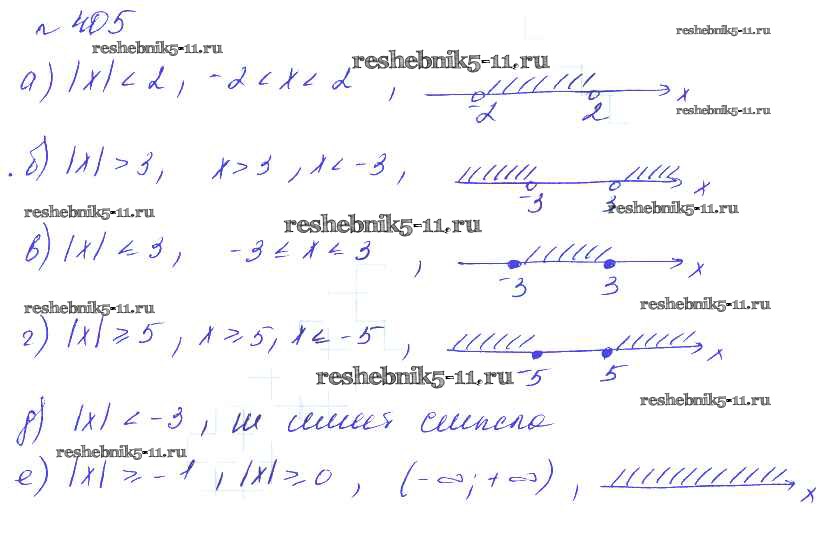 № 405
reshebnik5-11.ru
reshebnik5-11.ru
reshebnik5-11.ru
а) |x| < 2, -2 < x < 2, -2 2 x
reshebnik5-11.ru
б) |x| > 3, x > 3, x < -3, -3 3 x
reshebnik5-11.ru
reshebnik5-11.ru
reshebnik5-11.ru
в) |x| ≤ 3, -3 ≤ x ≤ 3, -3 3 x
reshebnik5-11.ru
reshebnik5-11.ru
г) |x| ≥ 5, x ≥ 5, x ≤ -5, -5 5 x
reshebnik5-11.ru
reshebnik5-11.ru
д) |x| < -3, не имеет смысла
reshebnik5-11.ru
е) |x| ≥ -1, |x| ≥ 0, (-∞; +∞), x